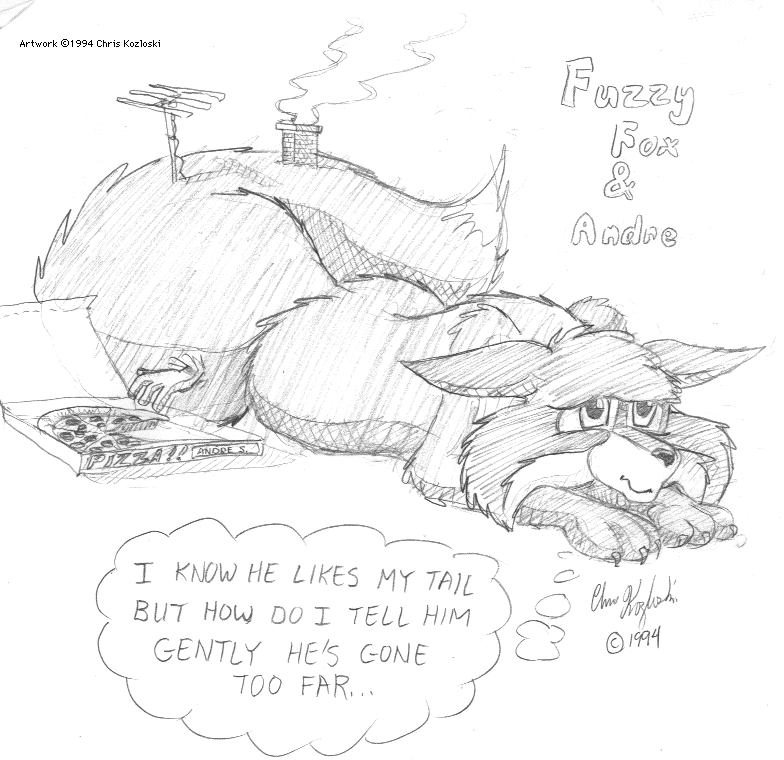 Artwork ©1994 Chris Kozloski
Fuzzy
Fox
&
Andre
PIZZA!!
ANDRE S.
I KNOW HE LIKES MY TAIL
BUT HOW DO I TELL HIM
GENTLY HE'S GONE
TOO FAR...
Chris Kozloski
©1994